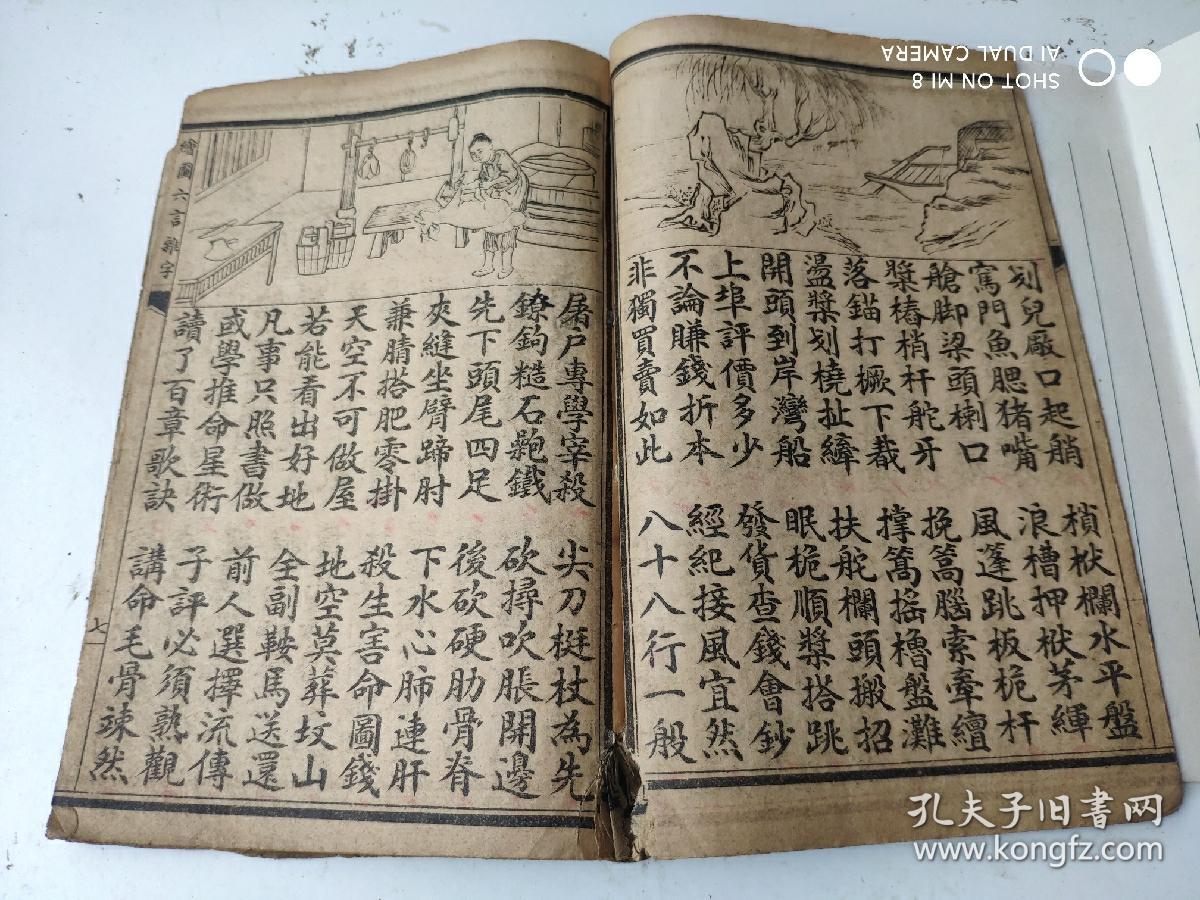 划兒廠口起艄
楨栿欄水平盤
寫門魚腮猪嘴
浪槽押栿茅繟
艙脚梁頭楋口
風蓬跳板桅杆
槳樁梢杆舵牙
挽篙腦索牽續
落錨打橛下載
撐篙搖櫓盤灘
盪槳划橈扯縴
扶舵欄頭搬招
開頭到岸灣船
眠桅順槳搭跳
上埠評價多少
發貨查錢會鈔
不論賺錢折本
經紀接風宜然
非獨買賣如此
八十八行一般
屠戶專學宰殺
尖刀梃杖為先
鐐鉤糙石鉋鐵
砍撏吹脹開邊
先下頭尾四足
後砍硬肋骨脊
夾縫坐臂蹄肘
下水心肺連肝
兼腈搭肥零掛
殺生害命圖錢
天空不可做屋
地空莫葬坟山
若能看出好地
全副鞍馬送還
凡事只照書做
前人選擇流傳
或學推命星術
子評必須熟觀
讀了百章歌訣
講命毛骨竦然
繪圖六言雜字
七
SHOT ON MI 8
AI DUAL CAMERA
孔夫子旧书网
www.kongfz.com